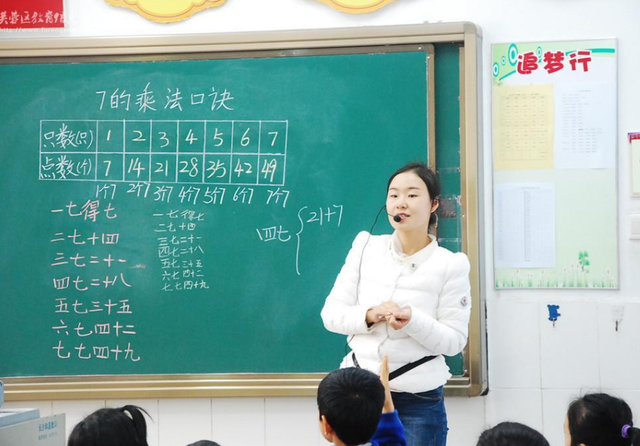 7的乘法口诀
只数(只) 1 2 3 4 5 6 7
点数(个) 7 14 21 28 35 42 49
1个7 2个7 3个7 4个7 5个7 6个7 7个7
一七得七
二七十四
三七二十一
四七二十八
五七三十五
六七四十二
七七四十九
一七得七
二七十四
三七二十一
四七二十八
五七三十五
六七四十二
七七四十九
四七 21+7
追梦行